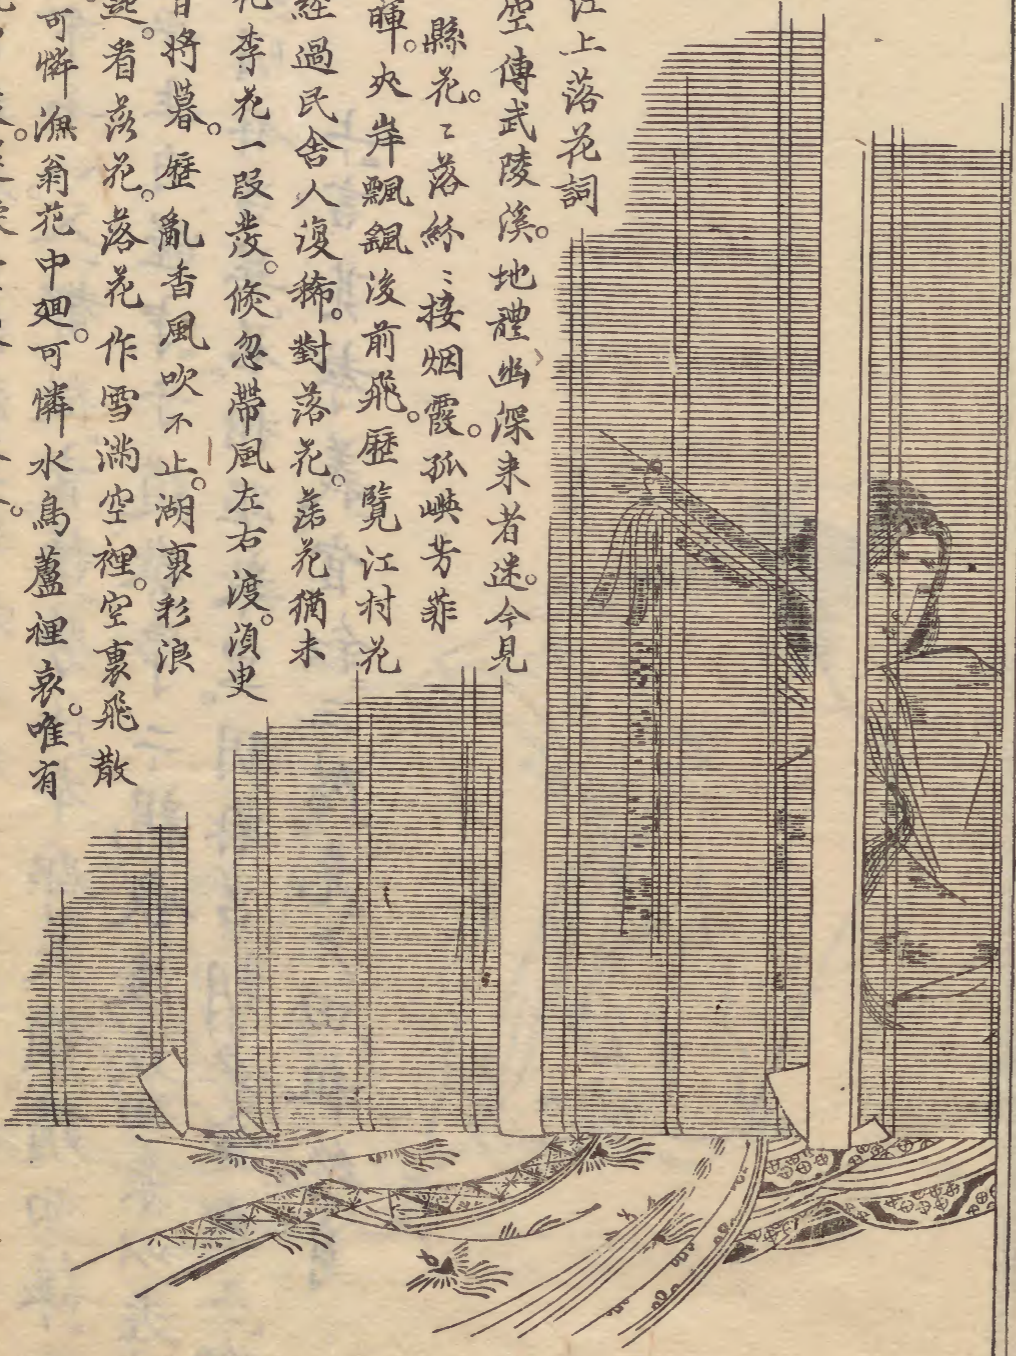 江上落花詞
空傳武陵溪。地體幽深来者迷。今見
縣花。〻落紛〻接烟霞。孤嶼芳菲
暉。夾岸飄颻後前飛。歴覽江村花
經過民舎人復稀。對落花。落花猶未
花李花一段發。倐忽帶風左右渡。須臾
將暮。歴亂香風吹不止。湖裏彩浪
起。看落花。落花作雪満空裡。空裏飛散
可憐漁翁花中廻。可憐水鳥蘆裡哀。唯有